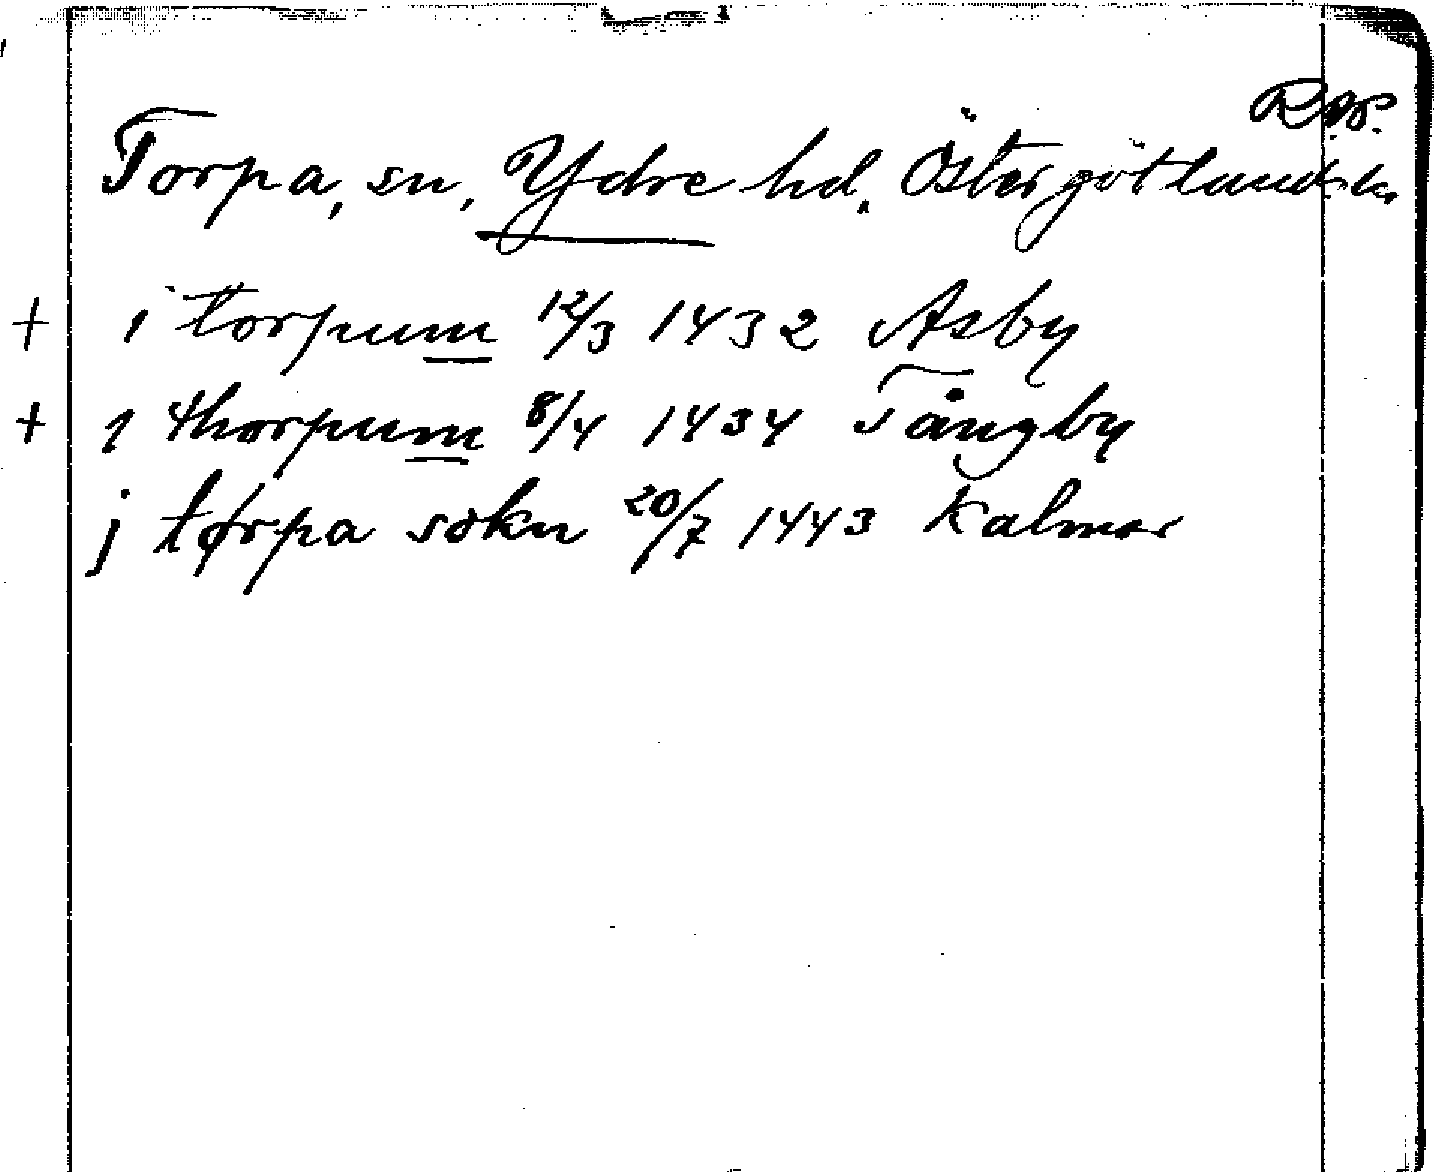 Rap.
Torpa, sn, Ydre hd. Östergötlands l.
+ i torpum 12/3 1432 Asby
+ j thorpum 8/4 1434 Tångby
j tørpa sokn 20/7 1443 Kalmar